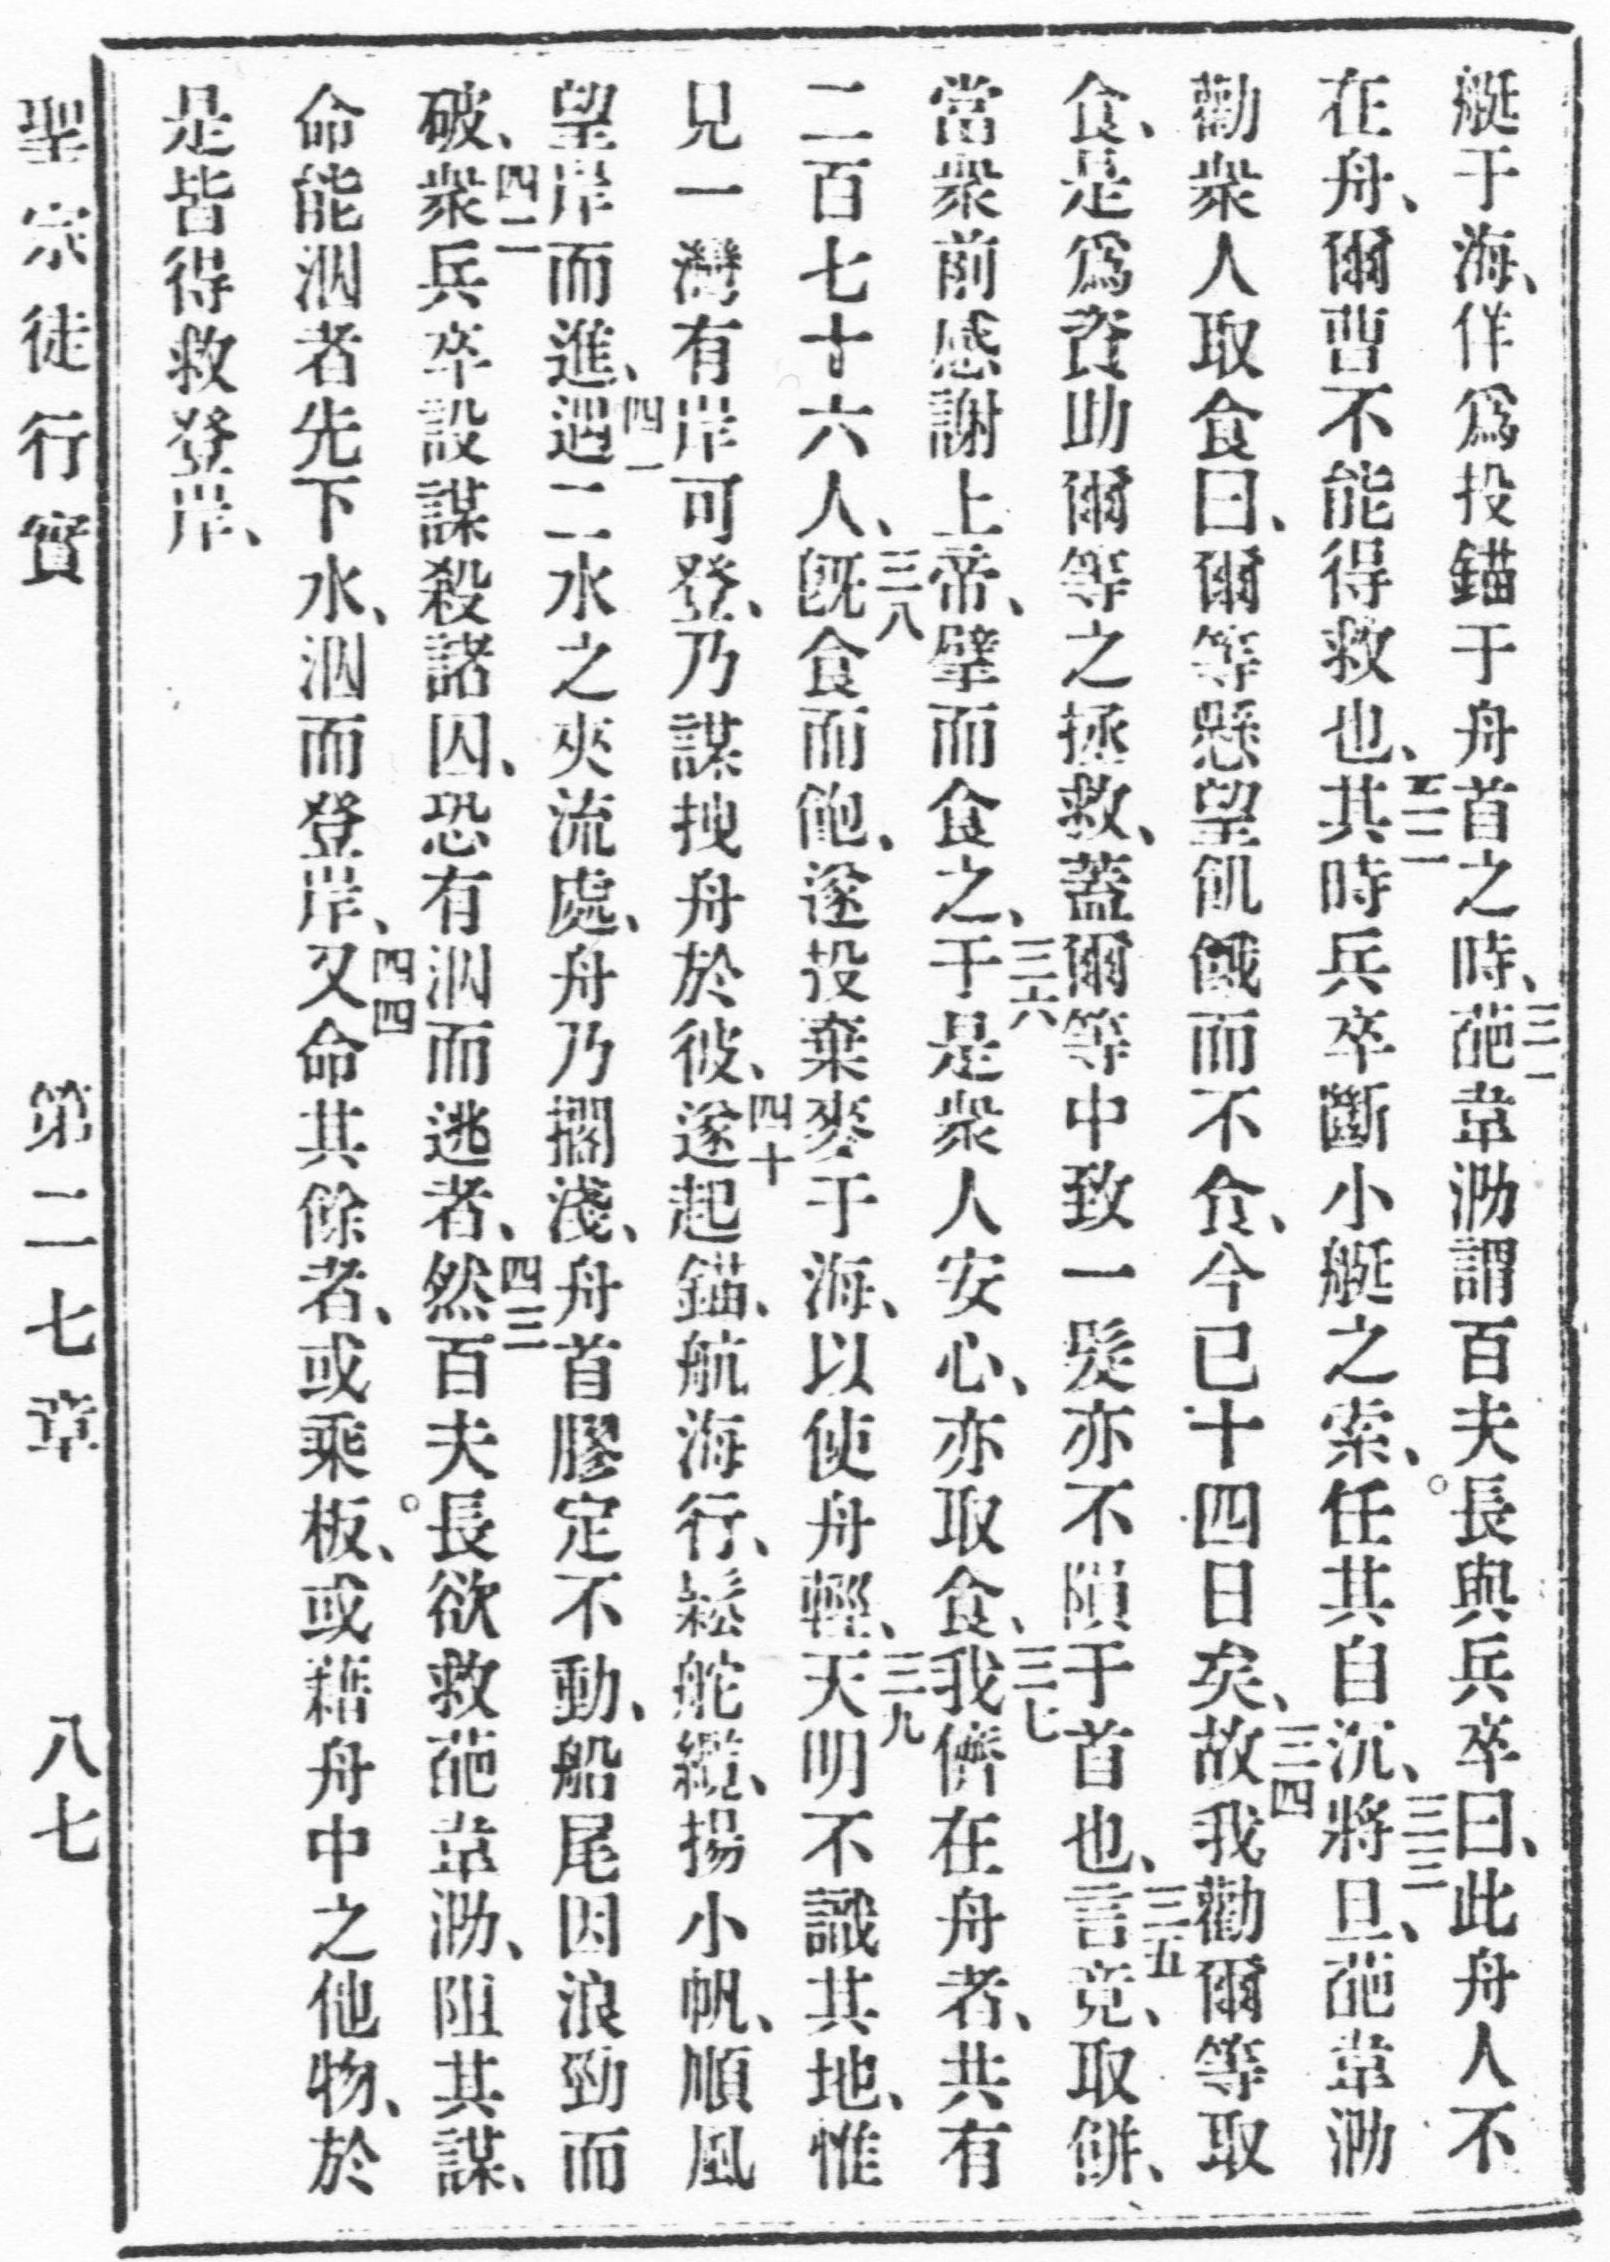 艇于海、佯爲投錨于舟首之時、三一葩韋泐謂百夫長與兵卒曰、此舟人不
在舟、爾曹不能得救也、三二其時兵卒斷小艇之索、任其自沉、三三將旦、葩韋泐
勸衆人取食曰、爾等懸望飢餓而不食、今已十四日矣、三四故我勸爾等取
食、是爲資助爾等之拯救、蓋爾等中致一髮亦不隕于首也、三五言竟、取餅、
當衆前感謝上帝、擘而食之、三六于是衆人安心、亦取食、三七我儕在舟者、共有
二百七十六人、三八旣食而飽、遂投棄麥于海、以使舟輕、三九天明不識其地、惟
見一灣有岸可登、乃謀拽舟於彼、四十遂起錨、航海行、鬆舵纜、揚小帆、順風
望岸而進、四一遇二水之夾流處、舟乃擱淺、舟首膠定不動、船尾因浪勁而
破、四二衆兵卒設謀殺諸囚、恐有泅而逃者、四三然百夫長欲救葩韋泐、阻其謀、
命能泅者先下水、泅而登岸、四四又命其餘者、或乘板、或藉舟中之他物、於
是皆得救登岸、
聖宗徒行實 第二七章 八七